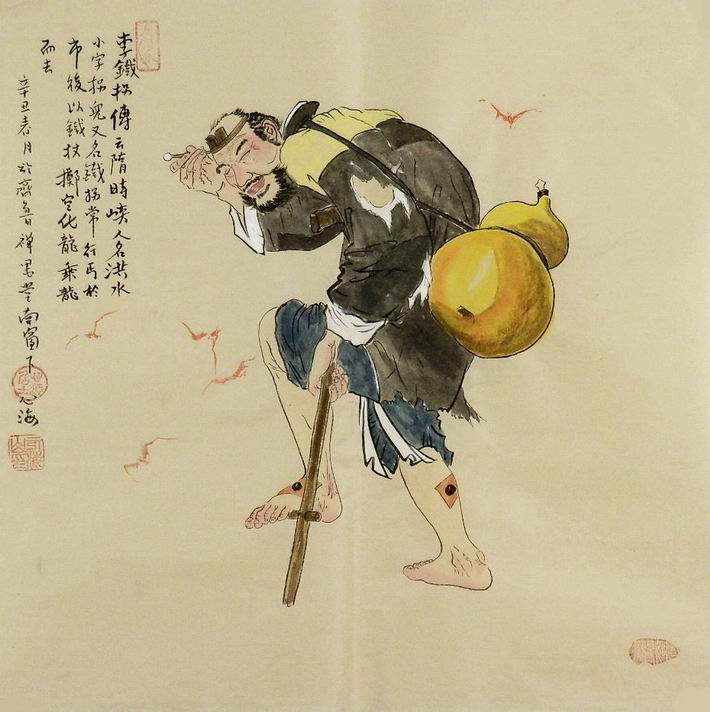 李鐵拐傳云隋時峽人名洪水
小字拐兒又名鐵拐常行丐於
市後以鐵杖擲空化龍乘龍
而去
辛丑春月於齊魯禅墨堂南窗下心海